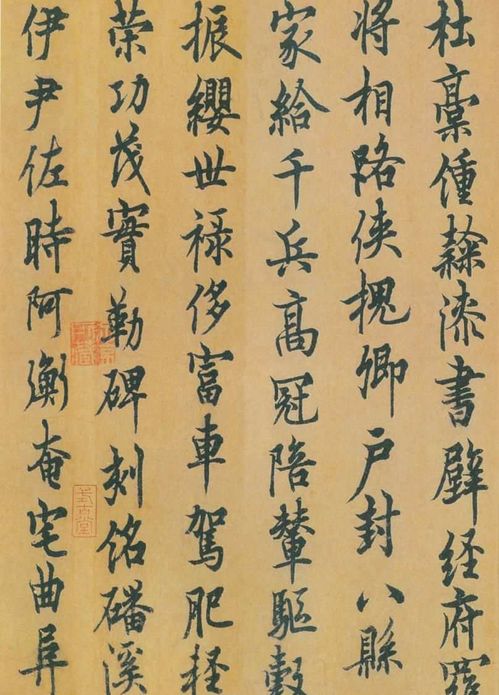 杜稾鍾隸漆書壁経府羅
将相路俠槐卿户封八縣
家給千兵髙冠陪輦驅轂
振纓世禄侈富車駕肥軽
荣功茂實勒碑刻銘磻溪
伊尹佐時阿衡奄宅曲阜
式古堂